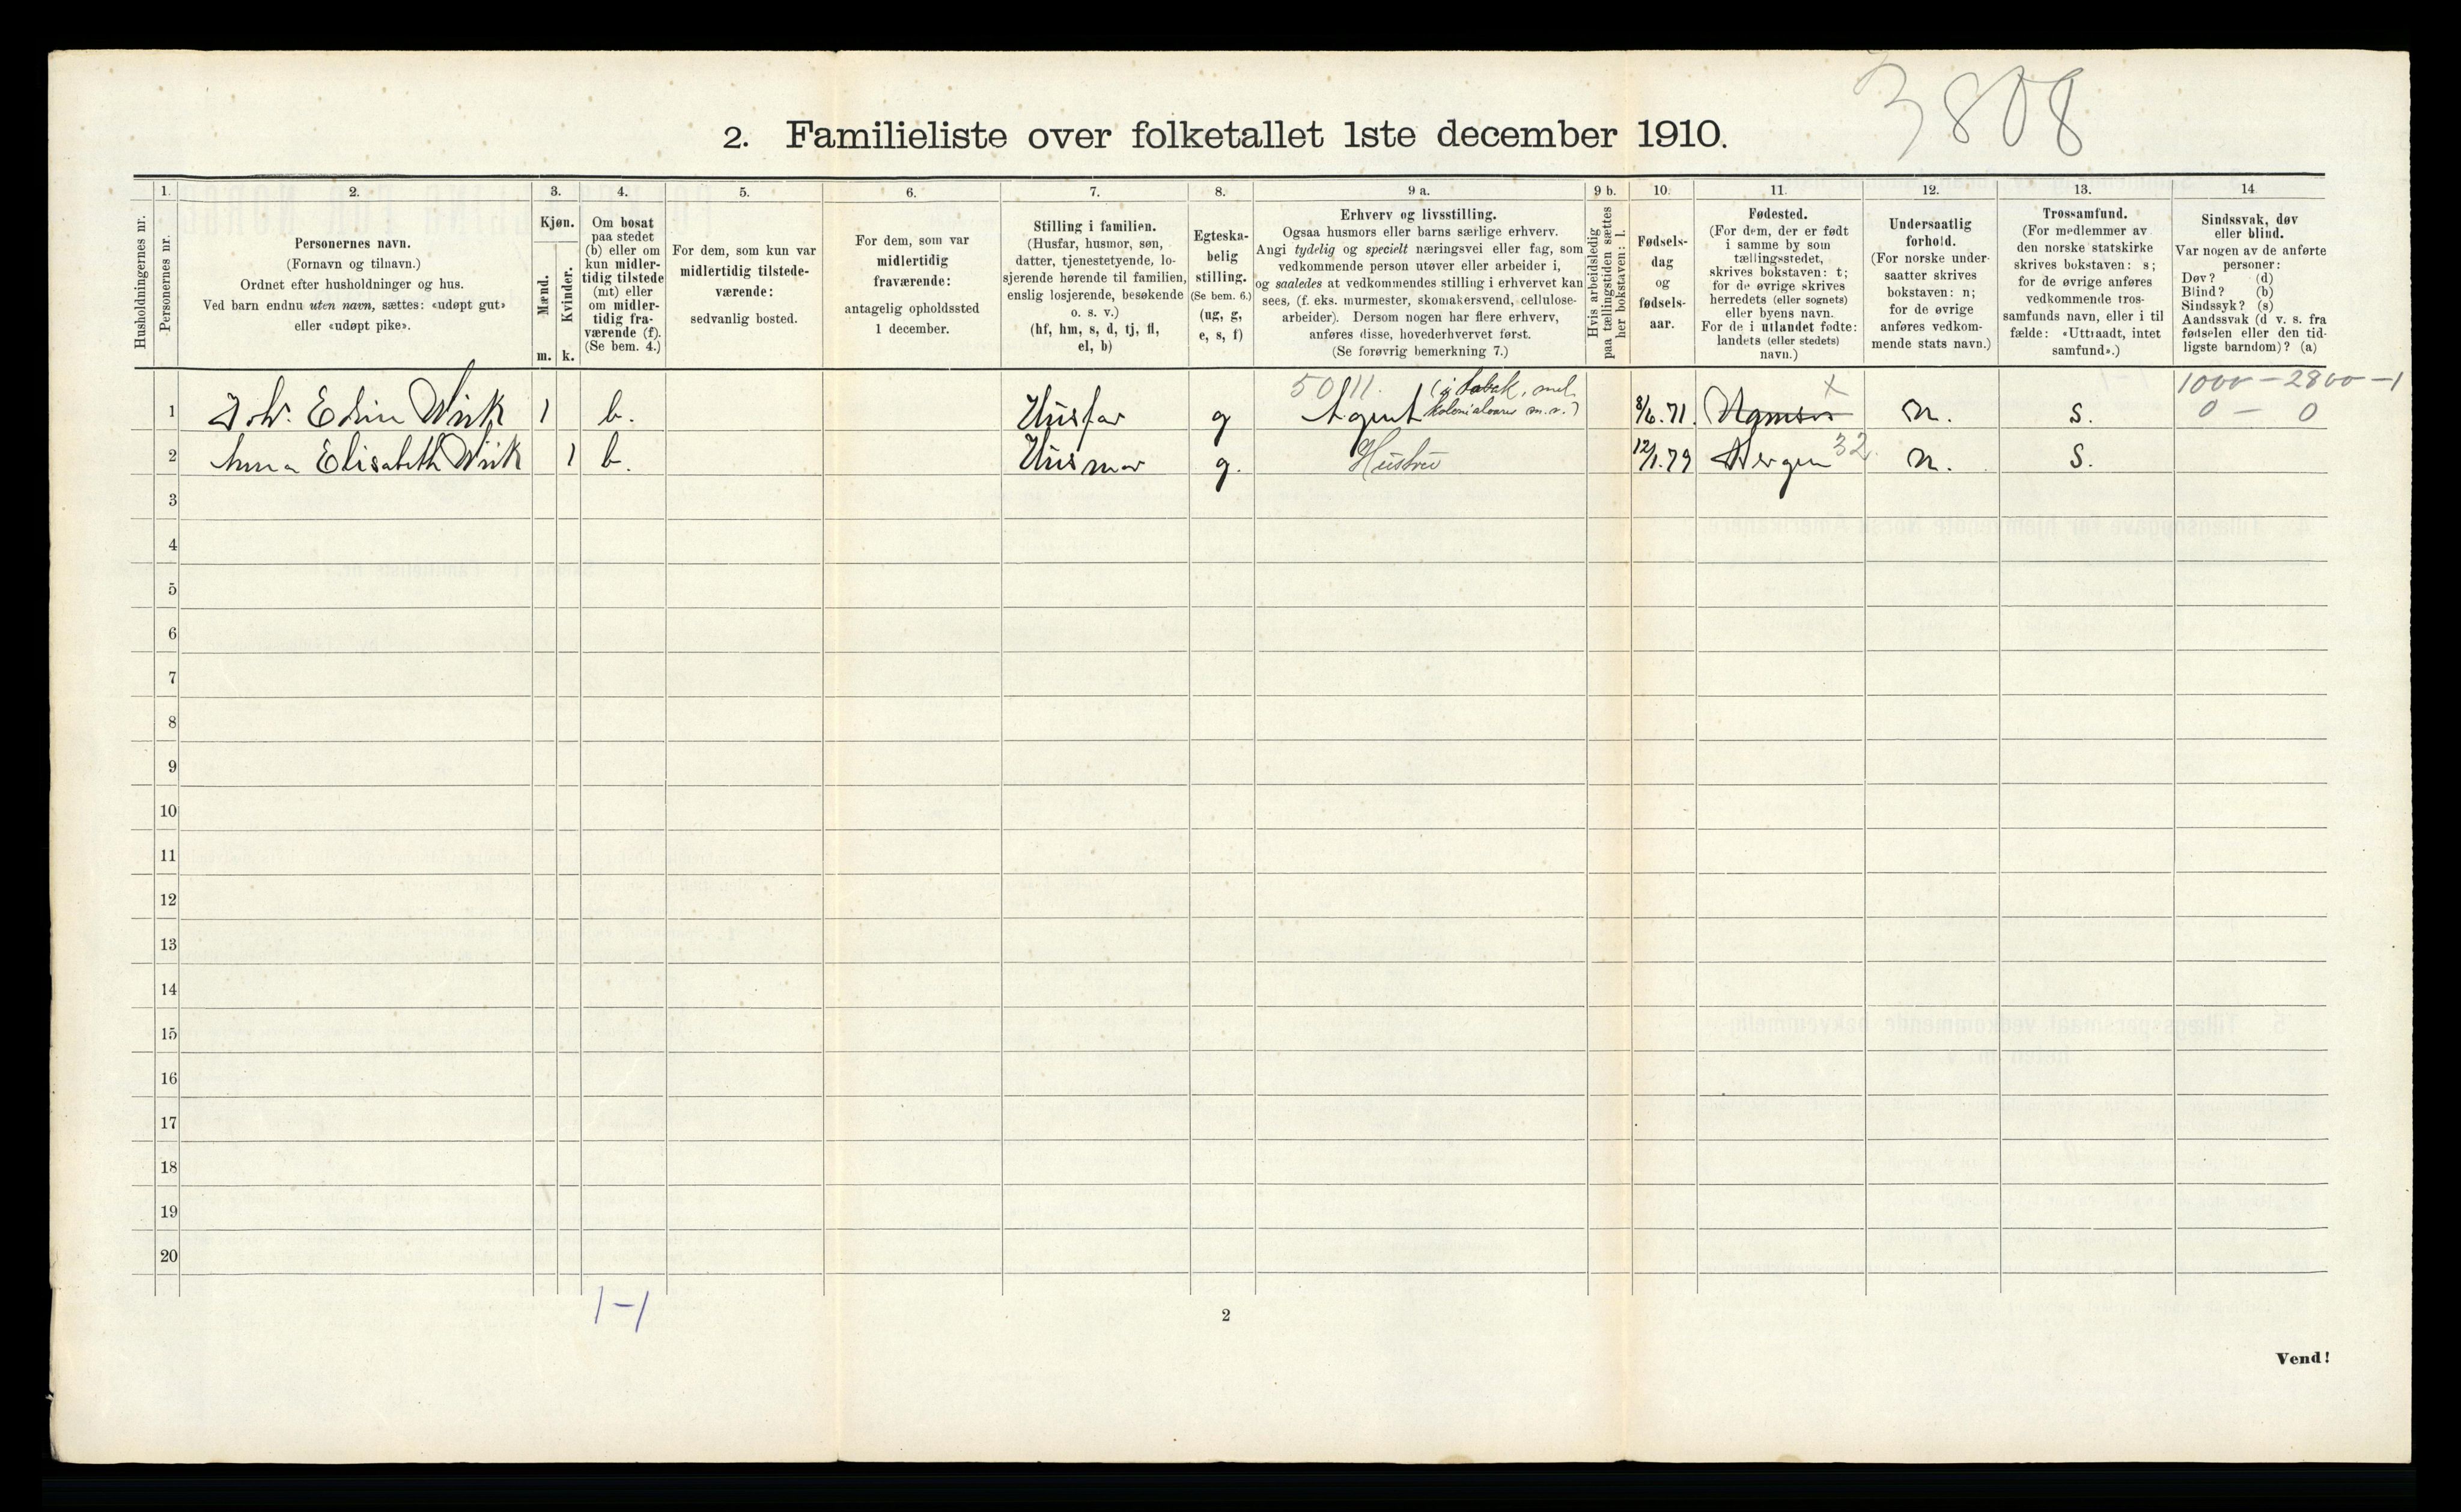 3808
2. Familieliste over folketallet 1ste december 1910.
Husholdningernes nr.
1.
Personernes nr.
2.
Personernes navn.
(Fornavn og tilnavn.)
Ordnet efter husholdninger og hus.
Ved barn endnu uten navn, sættes: «udøpt gut»
eller «udøpt pike».
3.
Kjøn.
Mænd.
Kvinder.
m. k.
4.
Om bosat
paa stedet
(b) eller om
kun midler-
tidig tilstede
(mt) eller
om midler-
tidig fra-
værende (f).
(Se bem. 4.)
5.
For dem, som kun var
midlertidig tilstede-
værende:
sedvanlig bosted.
6.
For dem, som var
midlertidig
fraværende:
antagelig opholdssted
1 december.
7.
Stilling i familien.
(Husfar, husmor, søn,
datter, tjenestetyende, lo-
sjerende hørende til familien,
enslig losjerende, besøkende
o. s. v.)
(hf, hm, s, d, tj, fl,
el, b)
8.
Egteska-
belig
stilling.
(Se bem. 6.)
(ug, g,
e, s, f)
9 a.
Erhverv og livsstilling.
Ogsaa husmors eller barns særlige erhverv.
Angi tydelig og specielt næringsvei eller fag, som
vedkommende person utøver eller arbeider i,
og saaledes at vedkommendes stilling i erhvervet kan
sees, (f. eks. murmester, skomakersvend, cellulose-
arbeider). Dersom nogen har flere erhverv,
anføres disse, hovederhvervet først.
(Se forøvrig bemerkning 7.)
9 b.
Hvis arbeidsledig
paa tællingstiden sættes
her bokstaven: l.
10.
Fødsels-
dag
og
fødsels-
aar.
11.
Fødested.
(For dem, der er født
i samme by som
tællingsstedet,
skrives bokstaven: t;
for de øvrige skrives
herredets (eller sognets)
eller byens navn.
For de i utlandet fødte:
landets (eller stedets)
navn.)
12.
Undersaatlig
forhold.
(For norske under-
saatter skrives
bokstaven: n;
for de øvrige
anføres vedkom-
mende stats navn.)
13.
Trossamfund.
(For medlemmer av
den norske statskirke
skrives bokstaven: s;
for de øvrige anføres
vedkommende tros-
samfunds navn, eller i til
fælde: «Uttraadt, intet
samfund».)
14.
Sindssvak, døv
eller blind.
Var nogen av de anførte
personer:
Døv? (d)
Blind? (b)
Sindssyk? (s)
Aandssvak (d v. s. fra
fødselen eller den tid-
ligste barndom)? (a)
50111. (i tabak, mel x 1000 - 2800 - 1
1 Edvin Wiik 1 b. Husfar g Agent kolonialvarer m.v.) 8/6.71. n. s. 0 - 0
2 Anna Elisabeth Wiik 1 b. Husmor g. Hustru 12/1.79 Bergen 32. n. s.
3
4
5
6
7
8
9
10
11
12
13
14
15
16
17
18
19
20
1-1
2
Vend!